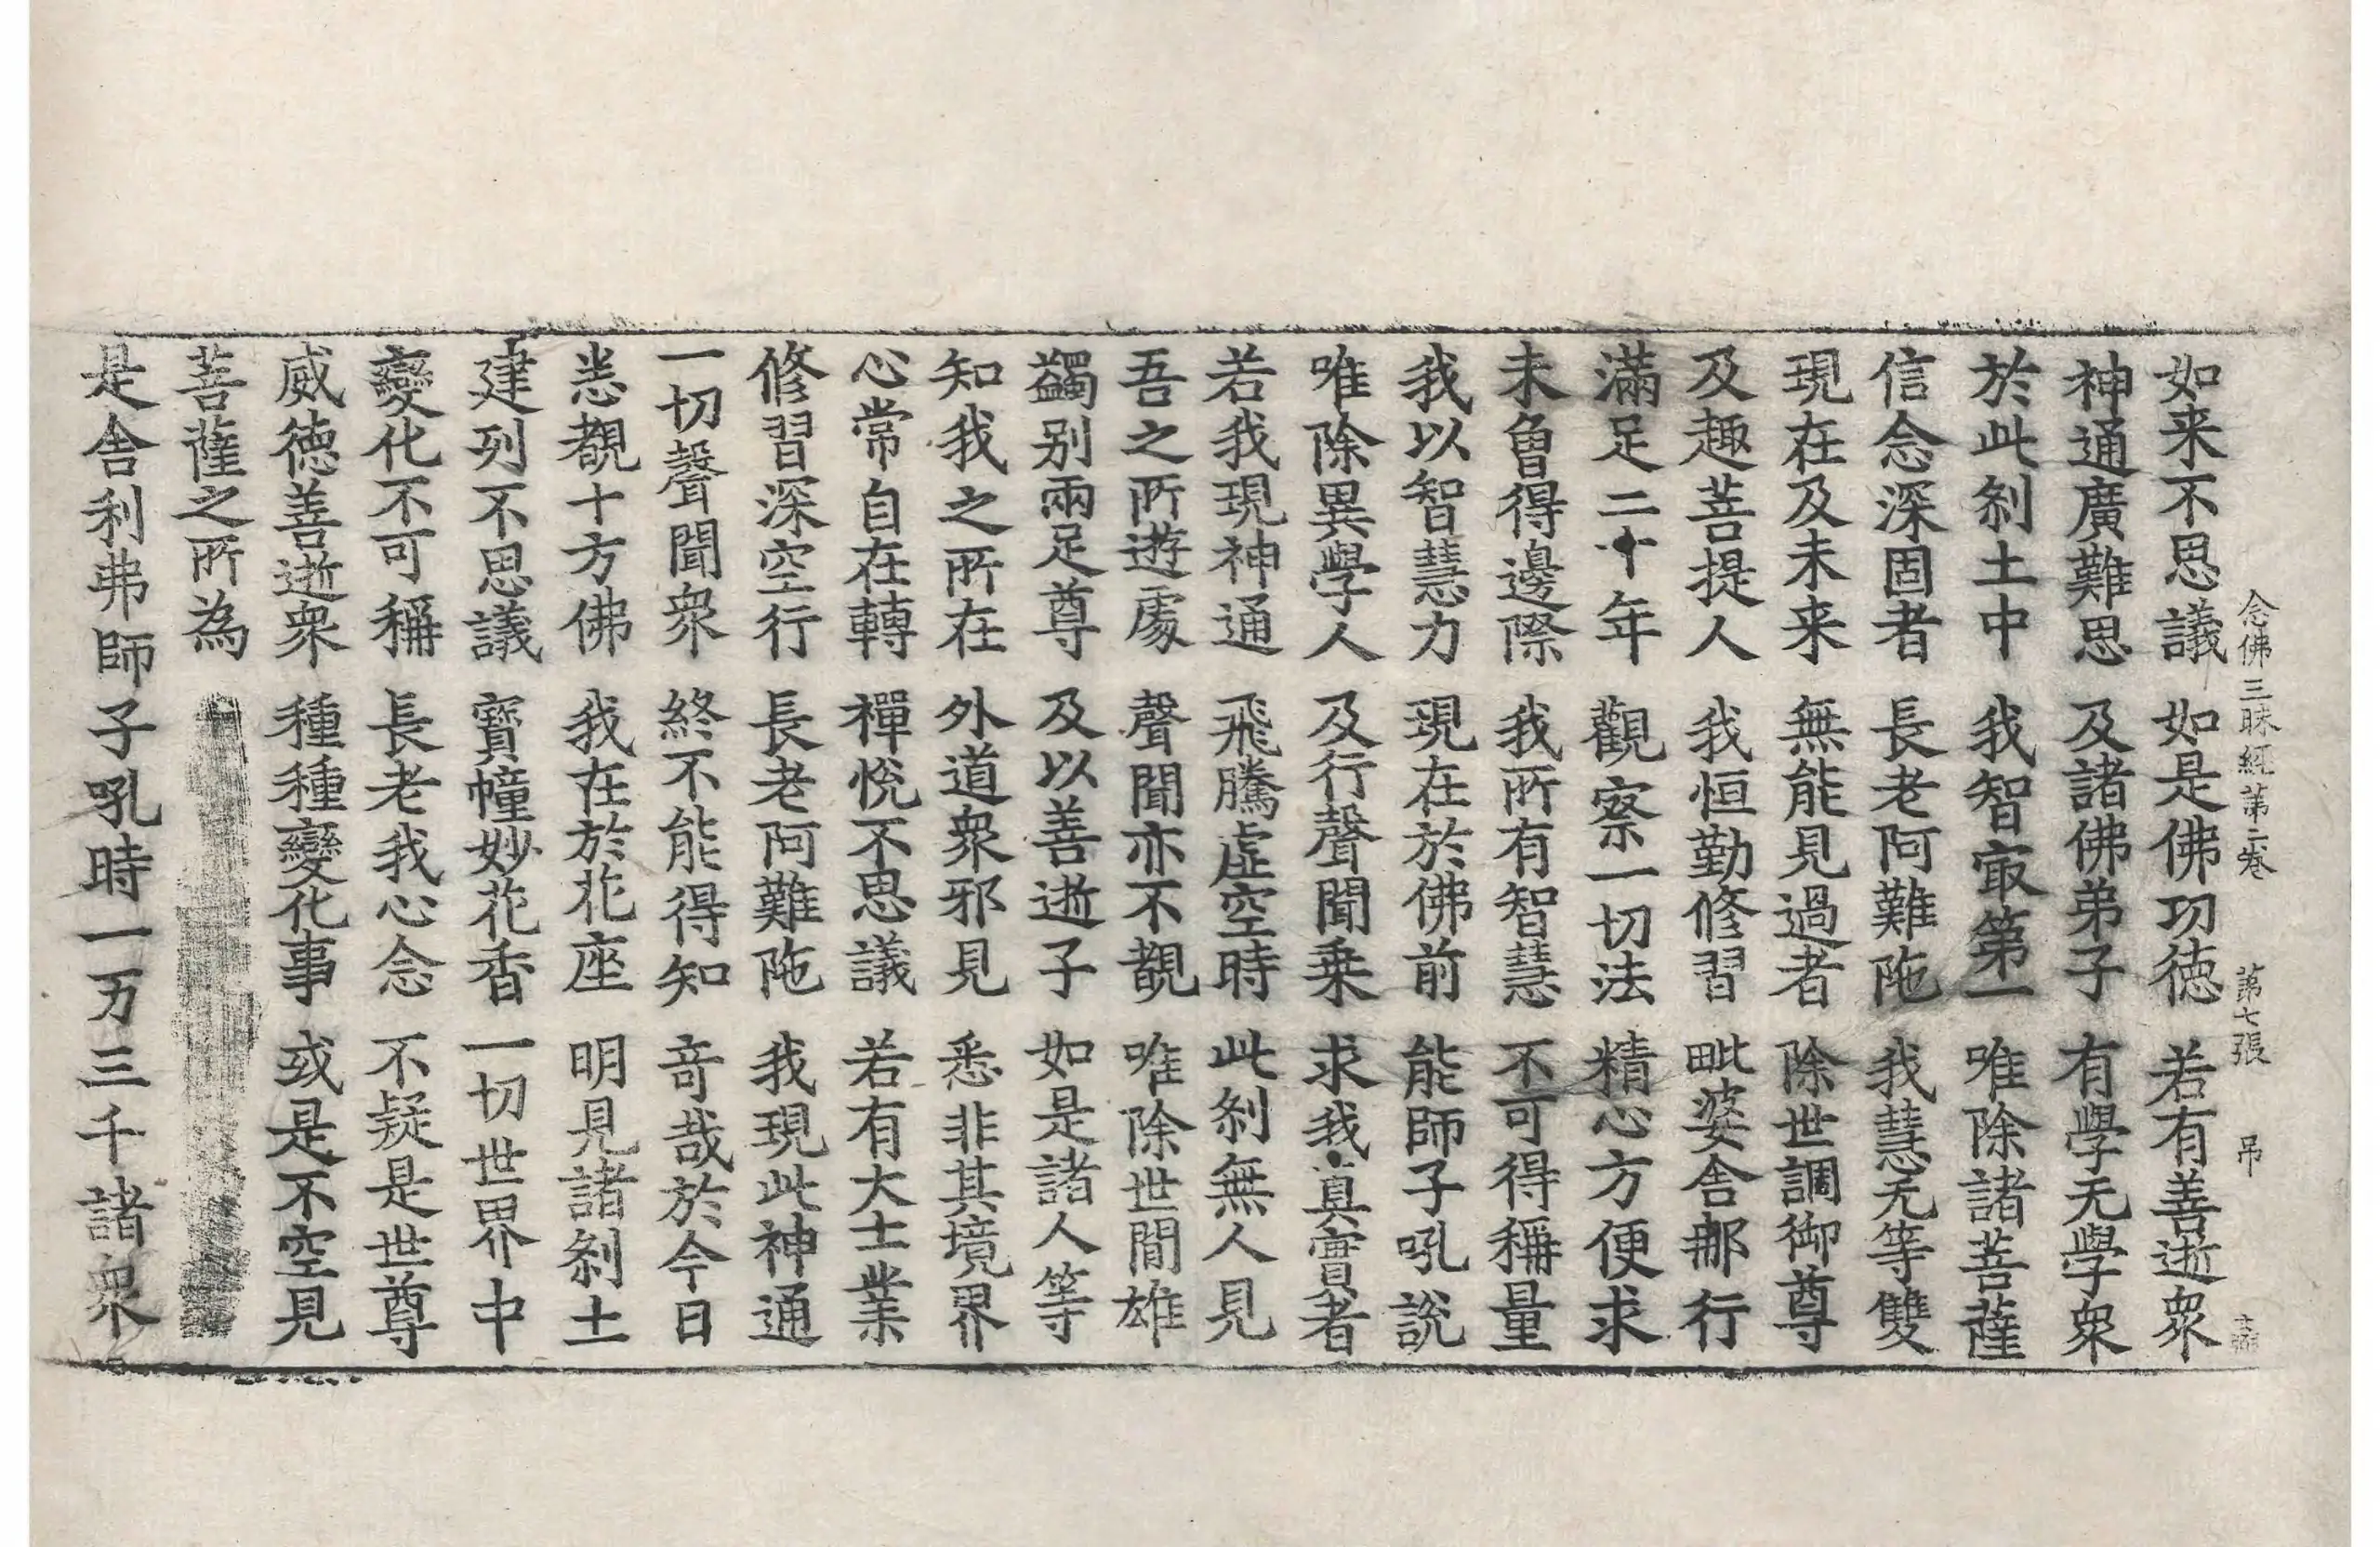 念佛三昧經第二卷 第七張 吊
如来不思議 如是佛功徳 若有善逝衆
神通廣難思 及諸佛弟子 有學无學衆
於此刹土中 我智㝡第一 唯除諸菩薩
信念深固者 長老阿難陁 我慧无等雙
現在及未来 無能見過者 除世調御尊
及趣菩提人 我恒勤修習 毗婆舎那行
滿足二十年 觀察一切法 精心方便求
未曽得邊際 我所有智慧 不可得稱量
我以智慧力 現在於佛前 能師子吼説
唯除異學人 及行聲聞乗 求我真實者
若我現神通 飛騰虚空時 此刹無人見
吾之所遊處 聲聞亦不覩 唯除世間雄
蠲别兩足尊 及以善逝子 如是諸人等
知我之所在 外道衆邪見 悉非其境界
心常自在轉 禪悅不思議 若有大士業
修習深空行 長老阿難陁 我現此神通
一切聲聞衆 終不能得知 竒哉於今日
悉覩十方佛 我在於花座 明見諸刹土
建列不思議 寶幢妙花香 一切世界中
變化不可稱 長老我心念 不疑是世尊
威徳善逝衆 種種變化事 或是不空見
菩薩之所為
是舎利弗師子吼時一万三千諸衆